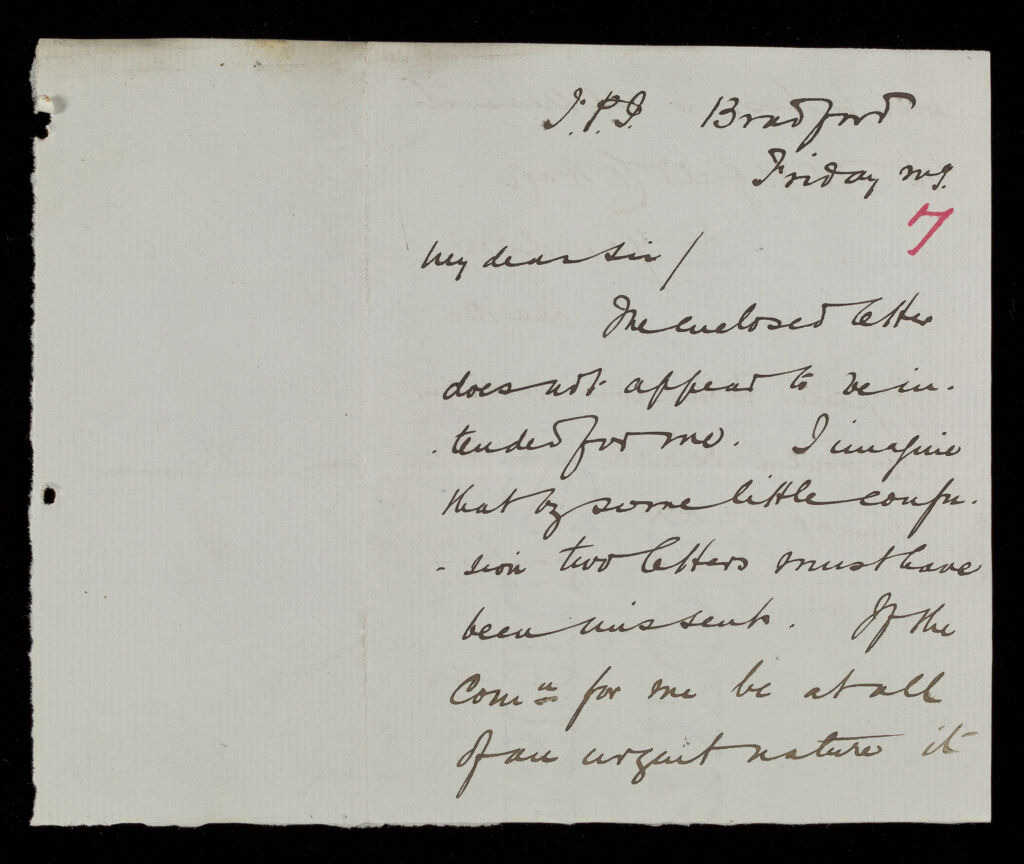 J.P.J. Bradford
Friday mg.
7
My dear Sir /
The enclosed letter
does not appear to be in-
-tended for me. I imagine
that by some little confu-
-sion two letters must have
been missent. If the
Comn for me be at all
of an urgent nature it